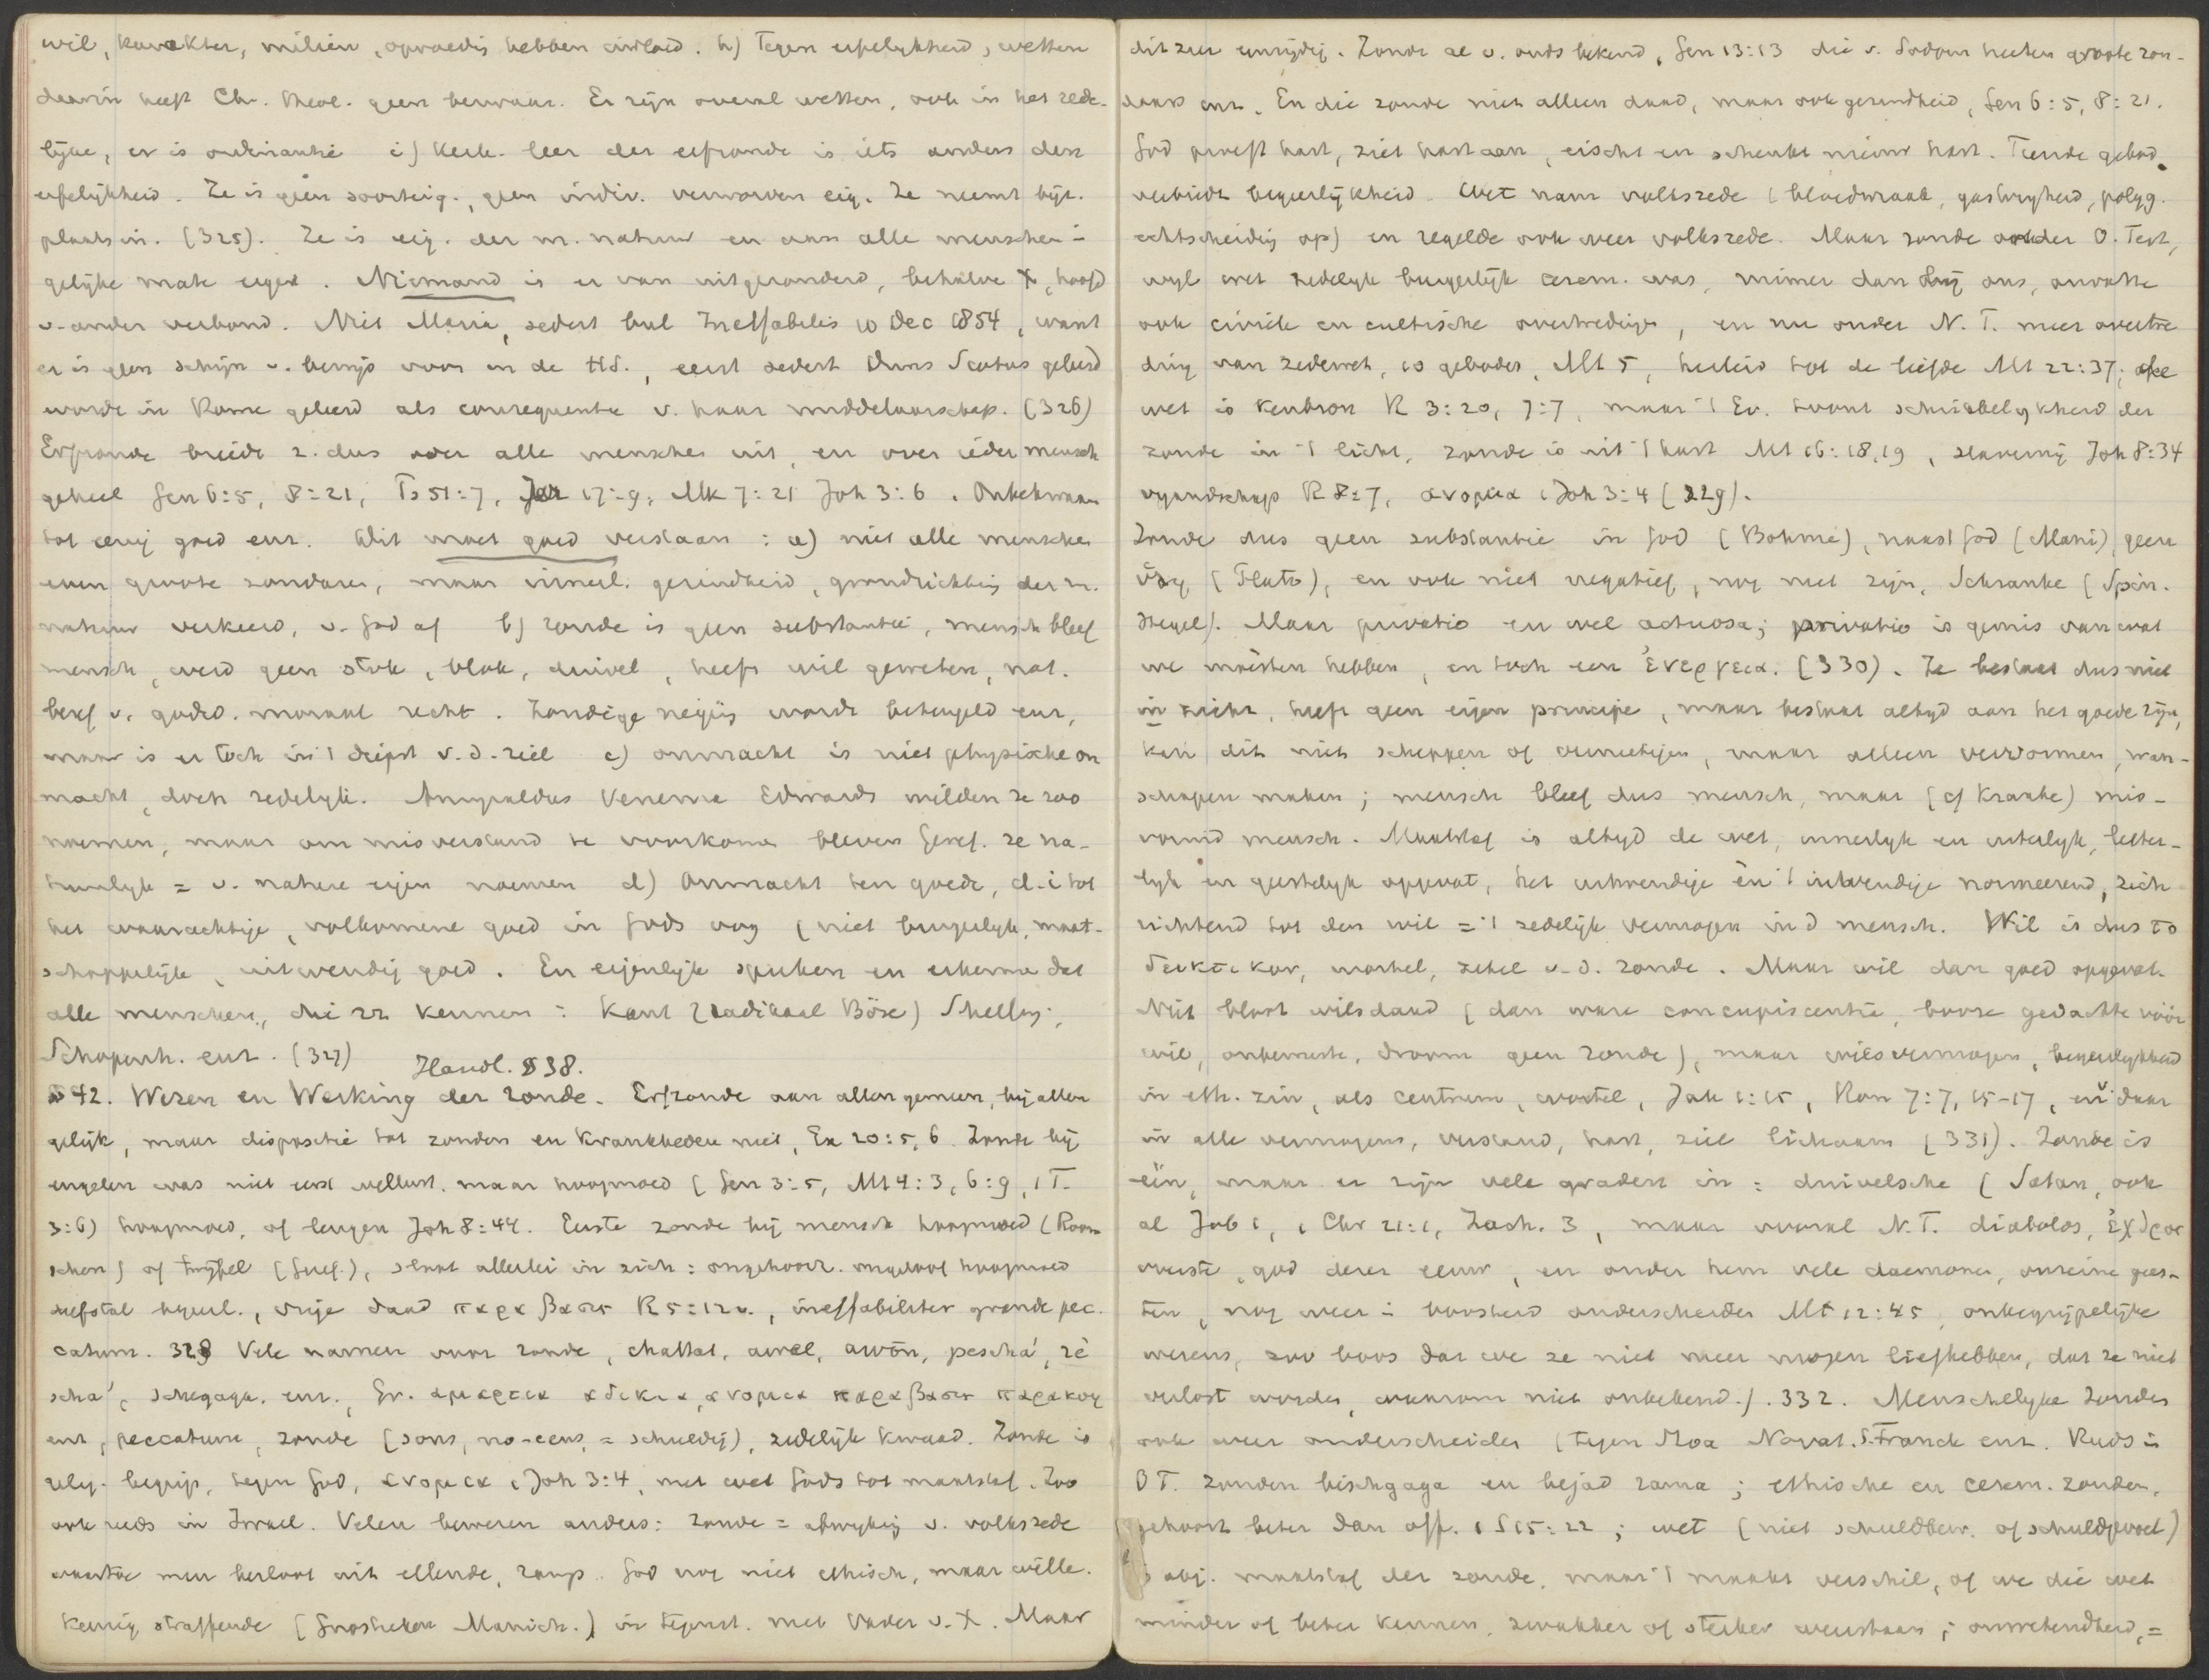 wil, karakter, milieu, opvoedig hebben invloed. h) Tegen erfelykheid, wetten
daarin heeft Chr. theol. geen bezwaar. Er zijn overal wetten, ook in het zede-
lijke, er is ordinantie i) Kerk. leer der erfzonde is iets anders dan
erfelykheid. Ze is geen soorteig., geen indiv. verworven eig. Ze neemt bijz.
plaats in. (325). Ze is eig. der m. natuur en aan alle menschen in
gelijke mate eigen. Niemand is er van uitgezonderd, behalve X, hoofd
v. ander verbond. Niet Maria, sedert bul Ineffabilis 10 Dec 1854, want
er is geen schijn v. bewijs voor in de H.S., eerst sedert Duns Scotus geleerd
werd in Rome geleerd als consequentie v. haar middelaarschap. (326)
Erfzonde breidt z. dus over alle menschen uit, en over ieder mensch
geheel Gen 6:5, 8:21, Ps 51:7, Jer 17:9, Mk 7:21 Joh 3:6. Onbekwaam
tot eenig goed enz. Dit moet goed verstaan: a) niet alle menschen
even groote zondaren, maar innerl. gezindheid, grondrichting der m.
natuur verkeerd, v. God af b) zonde is geen substantie, mensch bleef
mensch, werd geen stok, blok, duivel, heeft wil geweten, nat.
besef v. godsd. moraal recht. Zondige neiging wordt beteugeld enz,
maar is er toch in 't diepst v. d. ziel c) onmacht is niet physische on
macht, doch zedelyk. Amyraldus Venema Edwards wilden ze zoo
noemen, maar om misverstand te voorkomen bleven Geref. ze na-
tuurlyk = v. nature eigen noemen d) Onmacht ten goede, d.i tot
het waarachtige, volkomene goed in Gods oog (niet burgerlyk, maat-
schappelijk, uitwendig goed. En eigenlijk spreken en erkennen dat
alle menschen, die zz kennen: Kant (radikaal Böse) Shelley,
Schopenh. enz. (327) Handl. § 38.
§ 42. Wezen en Werking der zonde. Erfzonde aan allen gemeen, bij allen
gelijk, maar dispositie tot zonden en krankheden niet, Ex 20:5,6. Zonde bij
engelen was niet eerst wellust. maar hoogmoed (Gen 3:5, Mt 4:3, 6:9, 1 T.
3:6) hoogmoed, of leugen Joh 8:44. Eerste zonde bij mensch hoogmoed (Room
schen) of twijfel (Geref.), sluit allerlei in zich: ongehoorz. ongeloof hoogmoed
diefstal begeerl., vrije daad παραβασις R 5:12v., ineffabiliter grande pec.
catum. 328 Vele namen voor zonde, chattat, awel, awōn, peschá, ré
scha', schegaga. enz., Gr. αμαρτια αδικια, ανομια παραβασις παρακοη
enz, peccatum, zonde (sons, no-cens, = schuldig), zedelijk kwaad. Zonde is
relig. begrip, tegen God, ανομια 1 Joh 3:4, met wet Gods tot maatstaf. Zoo
ook reeds in Israel. Velen beweren anders: zonde = afwyking v. volkszede
waartoe men besloot uit ellende, ramp. God nog niet ethisch, maar wille-
keurig straffende (Gnostieken Manich.) in tegenst. met Vader v. X. Maar
dit zeer eenzijdig. Zonde al v. ouds bekend, Gen 13:13 die v. Sodom heeten groote zon-
daars enz. En die zonde niet alleen daad, maar ook gezindheid, Gen 6:5, 8:21.
God proeft hart, ziet hart aan, eischt en schenkt nieuw hart. Tiende gebod
verbiedt begeerlijkheid. Wet nam volkszede (bloedwraak, gastvryheid, polyg.
echtscheidig op) en regelde ook weer volkszede. Maar zonde onder O. Test,
wyl wet zedelyk burgerlijk cerem. was, ruimer dan bij ons, omvatte
ook civiele en cultische overtredingen, en nu onder N. T. meer overtre
ding van zedewet, 10 geboden, Mt 5, herleid tot de liefde Mt 22:37,
wet is kenbron R 3:20, 7:7, maar 't Ev. toont schrikkelykheid der
zonde in 't licht, zonde is uit 't hart Mt 16:18,19, slavernij Joh 8:34
vyandschap R 8:7, ανομια 1 Joh 3:4 (329).
Zonde dus geen substantie in God (Böhme), naast God (Mani), geen
ὕλη (Plato), en ook niet negatief, nog niet zijn, Schranke (Spin.
Hegel). Maar privatio en wel actuosa; privatio is gemis van wat
we moesten hebben, en toch een ἐνεργεια. (330). Ze bestaat dus niet
in zich, heeft geen eigen principe, maar bestaat altyd aan het goede zijn,
kan dit niet scheppen of vernietigen, maar alleen vervormen, wan-
schapen maken; mensch bleef dus mensch, maar (cf Kranke) mis-
vormd mensch. Maatstaf is altyd de wet, innerlyk en uiterlyk, letter-
lyk en geestelyk opgevat, het uitwendige èn 't inwendige normeerend, zich
richtend tot den wil = 't zedelijk vermogen in d mensch. Wil is dus το
δεικτικον, wortel, zetel v. d. zonde. Maar wil dan goed opgevat.
Niet bloot wilsdaad (dan ware concupiscentie, booze gedachte vóór
wil, onbewuste, droom geen zonde), maar wilsvermogen, begeerlykheid
in eth. zin, als centrum, wortel, Jak 1:15, Rom 7:7, 15-17, en v. daar
in alle vermogens, verstand, hart, ziel lichaam (331). Zonde is
één, maar er zijn vele graden in: duivelsche (Satan, ook
al Job 1, 1 Chr 21:1, Zach. 3, maar vooral N.T. diabolos, ἐχθρος
overste, god dezer eeuw, en onder hem vele daemonen, onreine gees-
ten, nog weer in boosheid onderscheiden Mt 12:45, onbegrijpelijke
wezens, zoo boos dat we ze niet meer mogen liefhebben, dat ze niet
verlost worden, waarom niet onbekend.). 332. Menschelyke zonden
ook weer onderscheiden (tegen Stoa Novat. S. Franck enz. Reeds in
O T. zonden bischgaga en bejad rama; ethische en cerem. zonden,
gehoorz beter dan off. 1 S 15:22; wet (niet schuldbew. of schuldgevoel)
is obj. maatstaf der zonde, maar 't maakt verschil, of we die wet
minder of beter kennen, zwakker of sterker weerstaan; onwetendheid, =